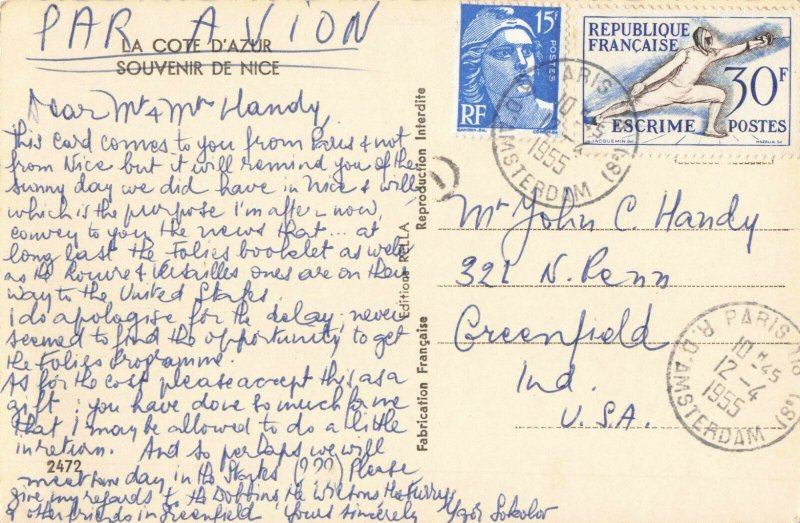 PAR AVION
LA COTE D'AZUR
SOUVENIR DE NICE
Dear Mr & Mrs Handy,
This card comes to you from Paris & not
from Nice but it will remind you of the
sunny day we did have in Nice & will
which is the purpose I'm after – now,
convey to you the news that ... at
long last the Folies booklet as well
as the Louvre & Versailles ones are on their
way to the United States.
I do apologise for the delay, never
seemed to find the opportunity to get
the Folies programme.
As for the cost please accept this as a
gift; you have done so much for me
that I may be allowed to do a little
in return. And so perhaps we will
meet some day in the States (???) Please
give my regards to the Dobbins, the Wilsons, the
& other friends in Greenfield Yours sincerely Ygor Sokolov
2472
Editions RELLA
Fabrication Française Reproduction Interdite
15F
POSTES
RF
RÉPUBLIQUE
FRANÇAISE
30F
ESCRIME POSTES
PARIS
1955
R. D'AMSTERDAM (8e)
Mr John C. Handy
321 N. Penn
Greenfield
Ind.
U.S.A.
PARIS
10H45
12-4
1955
R. D'AMSTERDAM (8e)